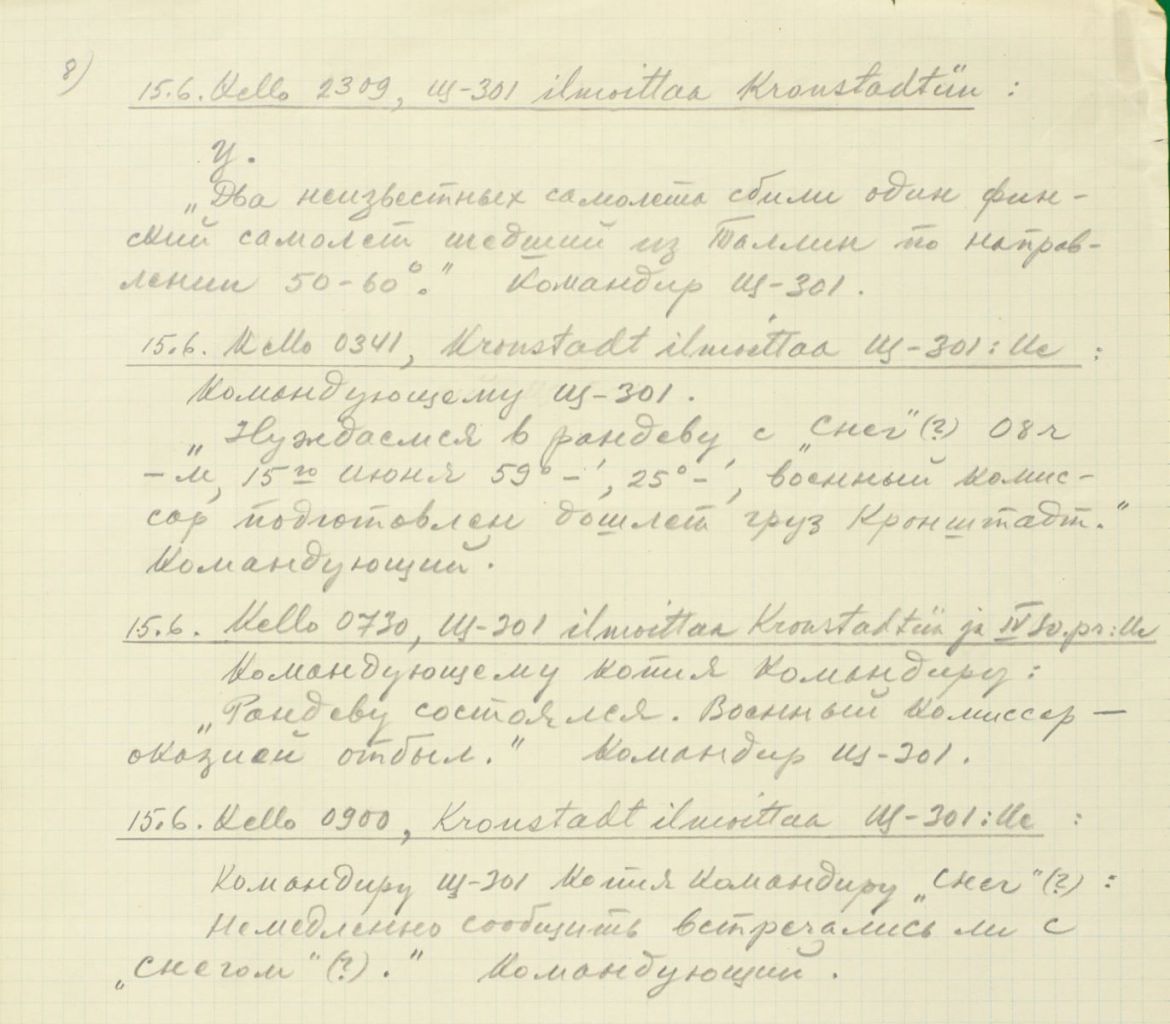 8)
15.6. Kello 2309, Щ-301 ilmoittaa Kronstadtiin :
У.
„Два неизвестных самолета сбили один фин-
ский самолет шедший из Таллин по направ-
лении 50-60°." Командир Щ-301.
15.6. Kello 0341, Kronstadt ilmoittaa Щ-301:lle :
Командующему Щ-301.
„Нуждаемся в рандеву с „Снег"(?) 08ч
-м, 15го июня 59°-', 25°-', военный комис-
сар подготовлен дошлет груз Кронштадт."
Командующий.
15.6. Kello 0730, Щ-301 ilmoittaa Kronstadtiin ja IV So.pr:lle
Командующему копия Командиру:
„Рандеву состоялся. Военный Комиссар —
оказией отбыл." Командир Щ-301.
15.6. Kello 0900, Kronstadt ilmoittaa Щ-301:lle :
Командиру Щ-301 Копия Командиру „Снег"(?) :
Немедленно сообщить встречались ли с
„Снегом"(?)." Командующий.